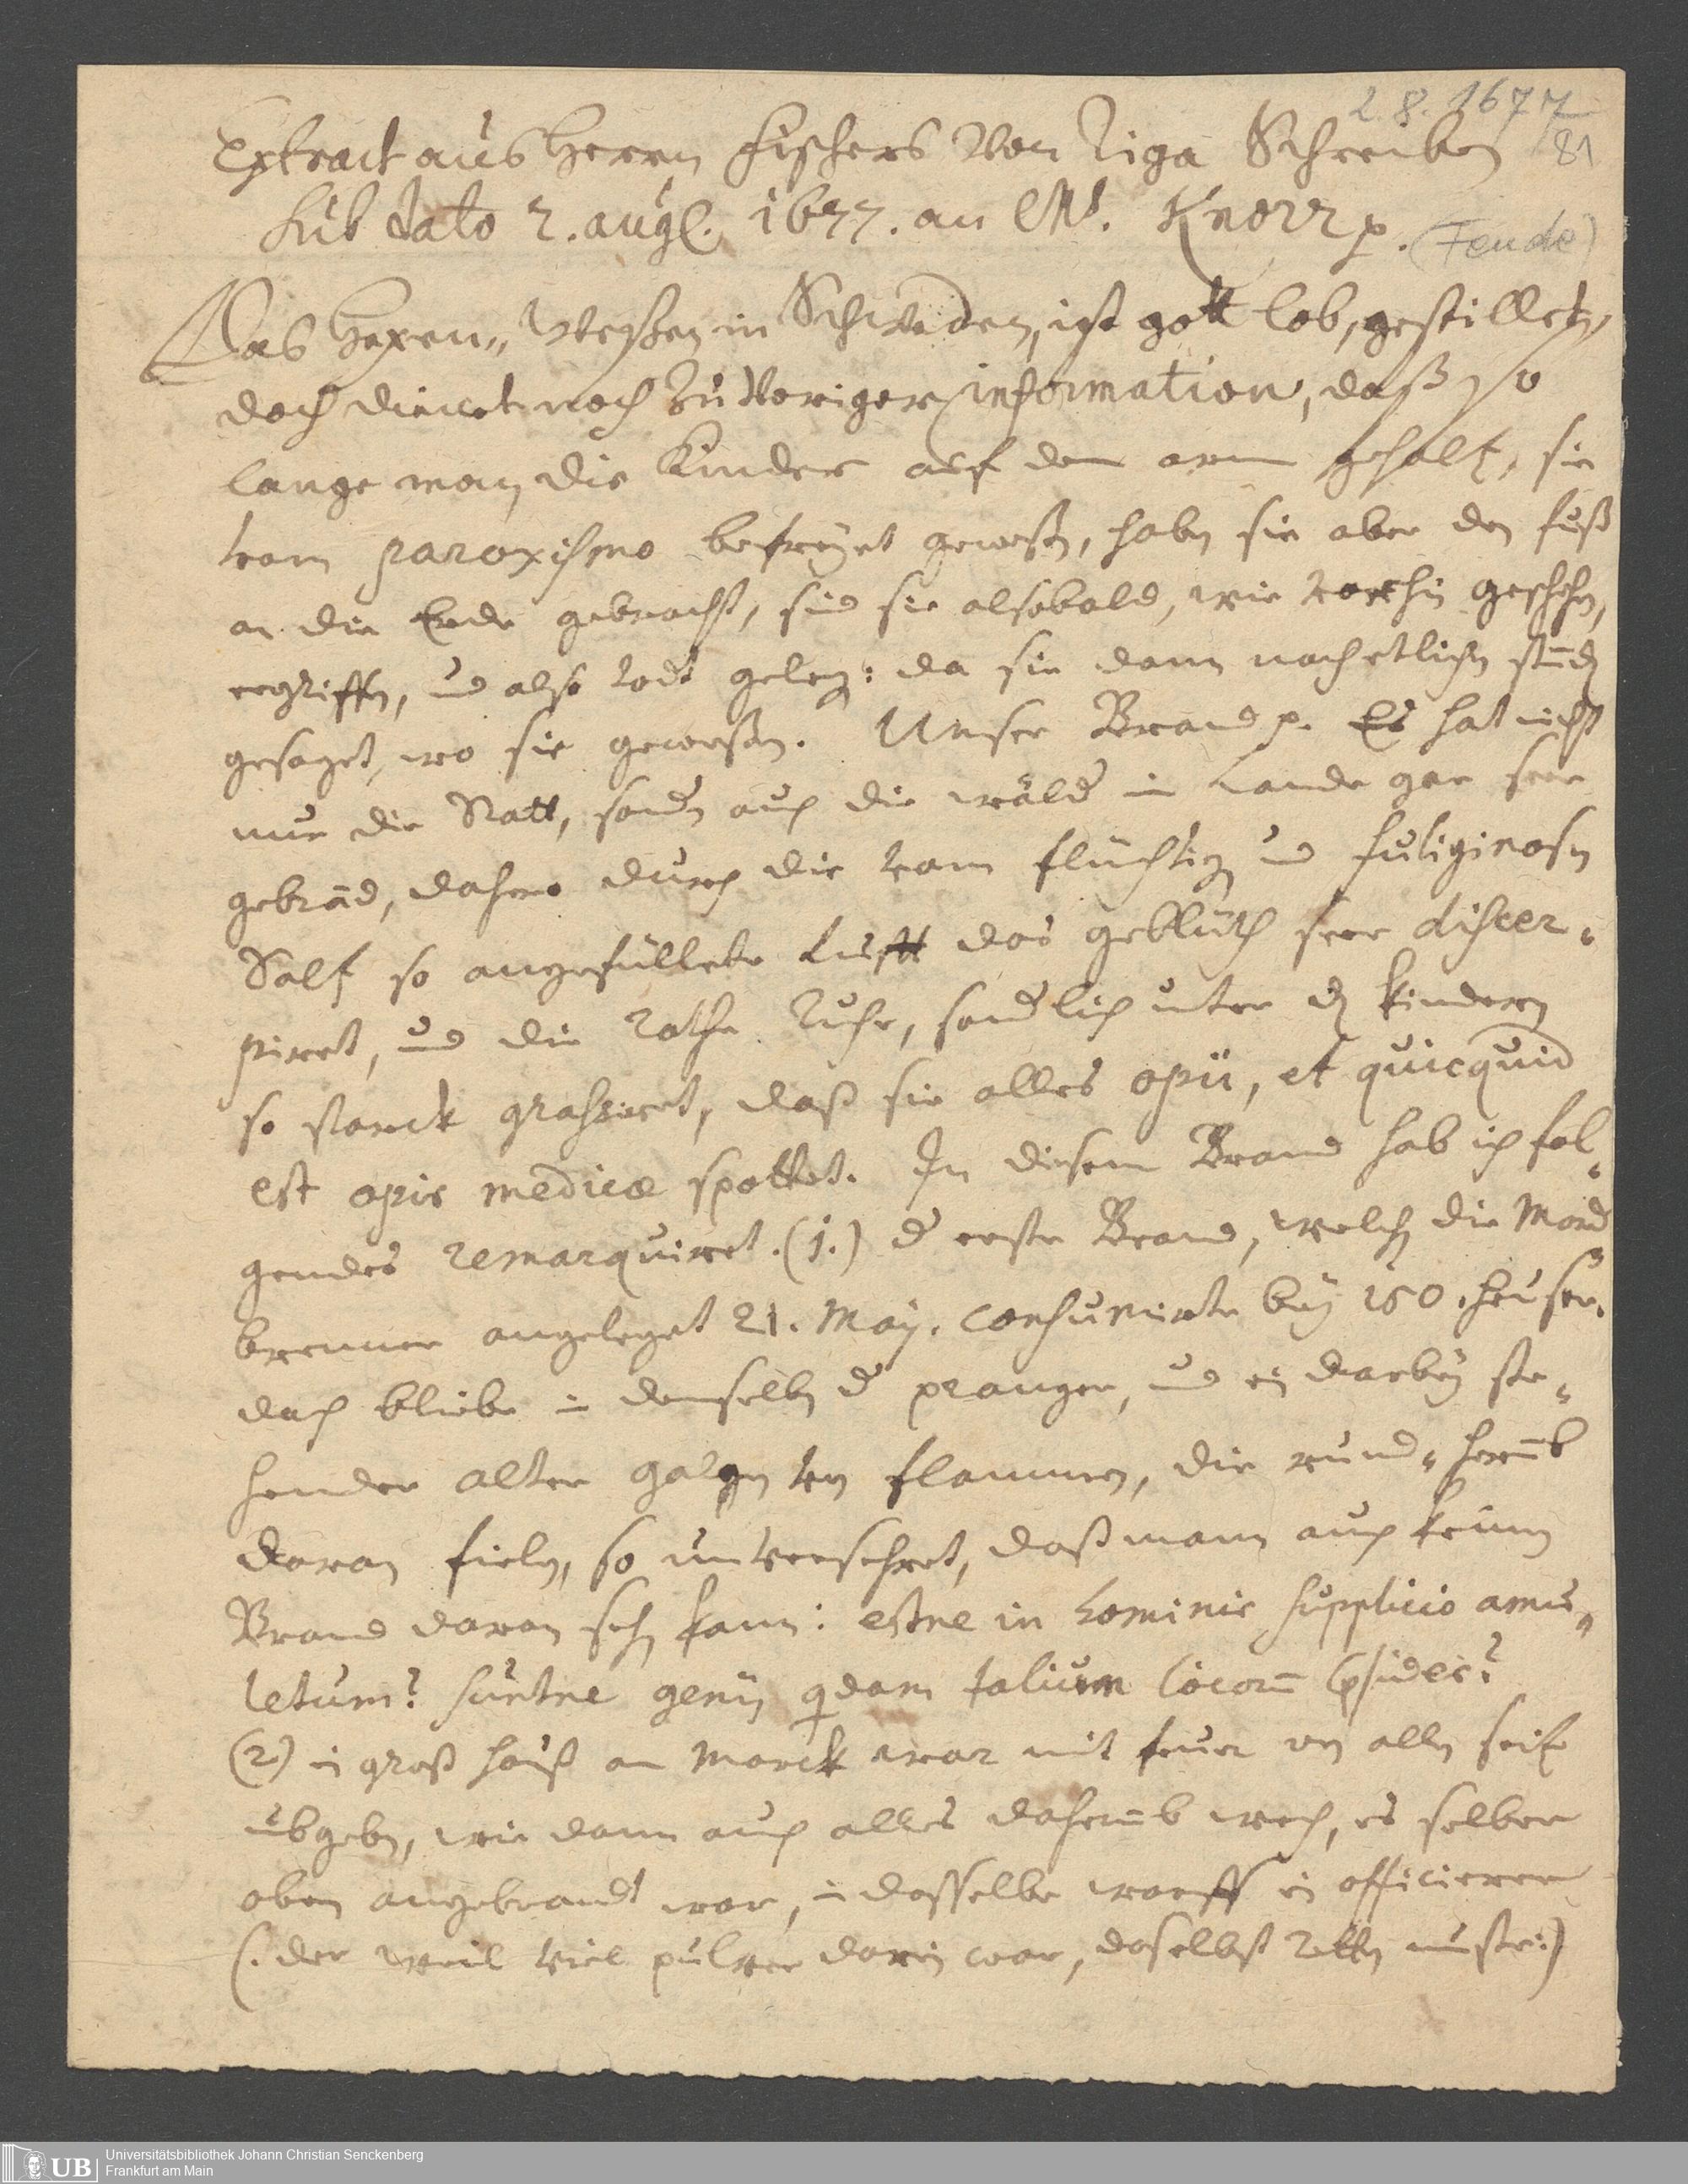 2. 8. 1677
81
Extract aus Herrn Fischers Von Riga Schreiben
sub dato 2. aug. 1677. an Mr. Knorr p.
(Feude)
Das Hexen-Weßen in Schweden, ist gott lob, gestillet,
doch dienet noch Zu Voriger information, daß so
lange man die Kinder auf dem arm gehalt, sie
vom paroxismo befreyet geweßn, habn sie aber den fuß
an die Erde gebracht, sind sie alsobald, wie vorhin geschehn,
ergriffn, und also todt gelegn: da sie dann nach etlichn stundn
gesaget, wo sie geweßen. Unser Brand p. Es hat nicht
nur die Statt, sondn auch die wäld in Lande gar seer
gebrand, dahero durch die vom flüchtign und fuliginosn
Saltz so angefüllete Lufft das geblüth seer discer-
piret, und die rothe Ruhr, sonderlich unter den kindern
so starck grassiret, daß sie alles opii, et quicquid
est opis medicæ spottet. In diesem Brand hab ich fol-
gendes remarquiret. (1.) der erste Brand, welchn die Mord
brenner angeleget 21. Maij. consumirte bey 150. heuser.
doch bliebe in demselbn der pranger, und ein darbey ste-
hender alter galgn von flammen, die rund-herumb
daran fieln, so unversehret, daß mann auch keinen
Brand daran sehn kann: estne in hominis supplicio amu-
letum? suntne genij qdam talium locorum psides?
(2) ein groß hauß am Marck war mit feuer von alln seitn
umbgebn, wie dann auch alles daherumb wech, es selber
oben angebrandt war, in dasselbe warff ein officierer
(: der weil viel pulver darin war, daselbst rettn muste:)
Universitätsbibliothek Johann Christian Senckenberg
Frankfurt am Main
UB